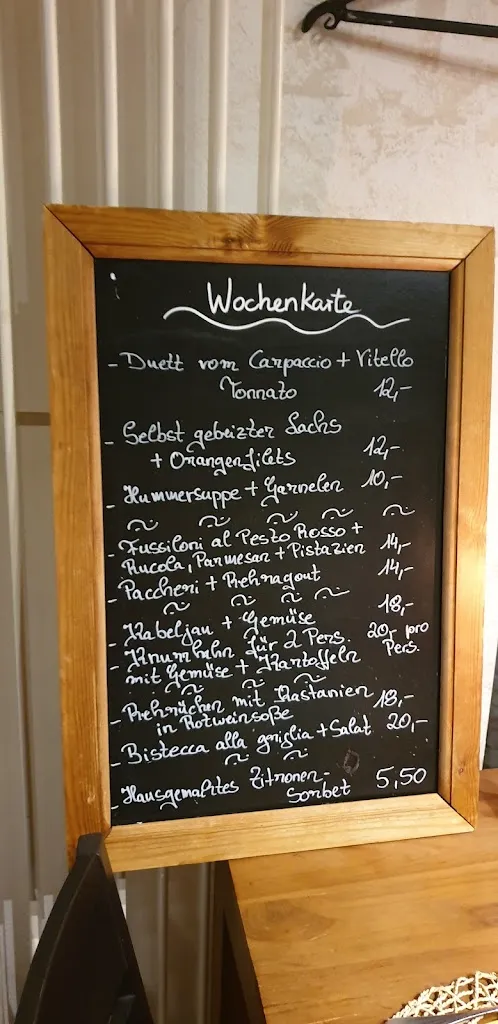 Wochenkarte
- Duett vom Carpaccio + Vitello
Tonnato 12,-
- Selbst gebeizter Lachs
+ Orangenfilets 12,-
- Hummersuppe + Garnelen 10,-
- Fussiloni al Pesto Rosso +
Rucola, Parmesan + Pistazien 14,-
- Paccheri + Rehragout 14,-
- Kabeljau + Gemüse 18,-
- Knurrhahn für 2 Pers. 20,- pro
mit Gemüse + Kartoffeln Pers.
- Rehrücken mit Kastanien 18,-
in Rotweinsoße
- Bistecca alla griglia + Salat 20,-
- Hausgemachtes Zitronen-
Sorbet 5,50